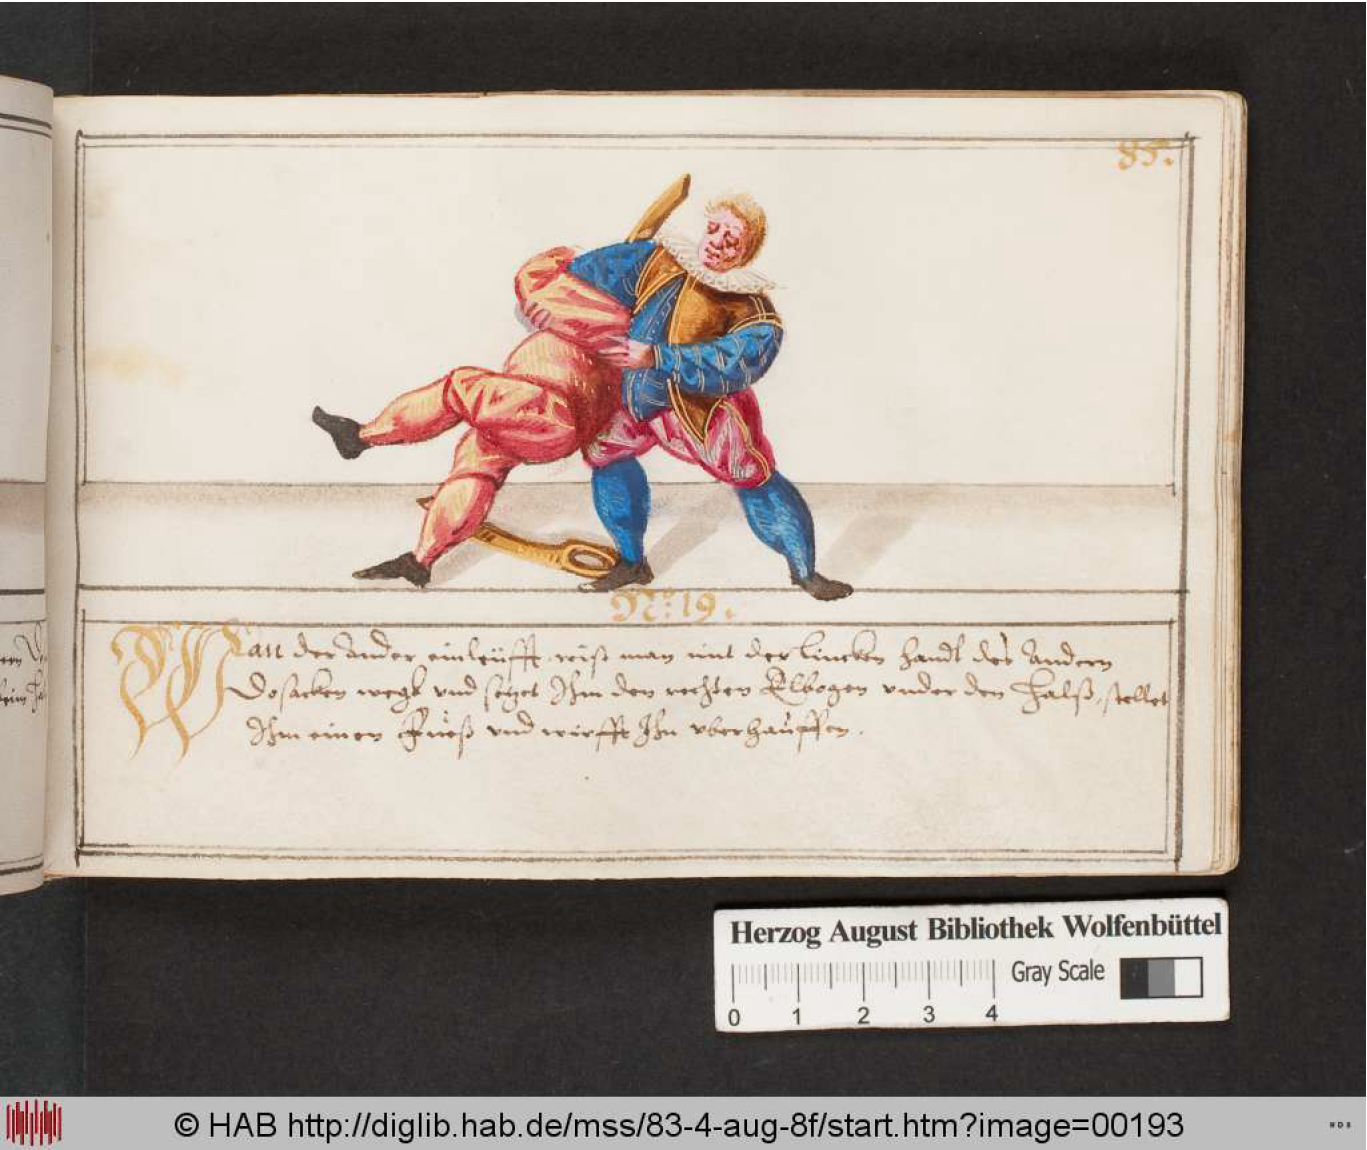 85.
No: 19.
Wan der Ander einleüfft, wist man mit der lincken handt des Andern
Dosacken wegk vnd setzet Ihm den rechten Elbogen vnder den halß, stellet
Ihm einen Fueß vnd wirfft Ihn vberhauffen.
Herzog August Bibliothek Wolfenbüttel
Gray Scale
0 1 2 3 4
© HAB http://diglib.hab.de/mss/83-4-aug-8f/start.htm?image=00193